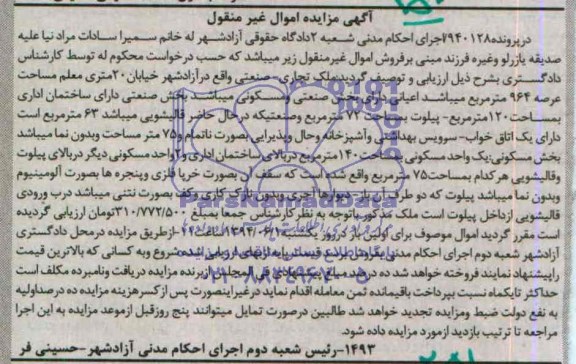 آگهی مزایده اموال غیر منقول
درپرونده ۷۹۴۰۱۲۸اجرای احکام مدنی شعبه ۲دادگاه حقوقی آزادشهر له خانم سمیرا سادات مراد نیا علیه
صدیقه یازرلو وغیره فرزند مبنی برفروش اموال غیرمنقول زیر میباشد که حسب درخواست محکوم له توسط کارشناس
دادگستری بشرح ذیل ارزیابی و توصیف گردید:ملک تجاری-صنعتی واقع درآزادشهر خیابان۲۰متری معلم مساحت
عرصه ۹۶۴ مترمربع میباشد اعیانی دارای بخش صنعتی ومسکونی میباشد بخش صنعتی دارای ساختمان اداری
بمساحت۱۲۰مترمربع- پیلوت بمساحت ۷۲ مترمربع وصنعتیکه درحال حاضر قالیشویی میباشد ۶۳ مترمربع است
دارای یک اتاق خواب- سرویس بهداشتی وآشپزخانه وحال وپذیرایی بصورت ناتمام و۷۵ متر مساحت وبدون نما میباشد
بخش مسکونی:یک واحد مسکونی بمساحت۱۴۰مترمربع دربالای ساختمان اداری و۲واحد مسکونی دیگر دربالای پیلوت
وقالیشویی هر کدام بمساحت۷۵ مترمربع واقع شده است که سقف آن بصورت خرپا فلزی وپنجره ها بصورت آلومینیوم
وبدون نما میباشد پیلوت که دو طرف آن باز دیوارها آجری وبدون نازک کاری وکف بصورت نتنی میباشد درب ورودی
قالیشویی ازداخل پیلوت است ملک مذکور باتوجه به نظر کارشناس جمعا بمبلغ ۳۱۰/۷۷۲/۵۰۰تومان ارزیابی گردیده
است مقرر گردید اموال موصوف برای اولین بار درروز یکشنبه ۱۳۹۴/۰۶/۱ ازطریق مزایده درمحل دادگستری
آزادشهر شعبه دوم اجرای احکام مدنی بفروش برسد قیمت پایه ازبهای ارزیابی شده شروع وبه کسانی که بالاترین قیمت
راپیشنهاد نمایند فروخته خواهد شد ده درصد مبلغ پیشنهادی فی المجلس ازبرنده مزایده دریافت ونامبرده مکلف است
حداکثر تایکماه نسبت بپرداخت باقیمانده ثمن معامله اقدام نماید درغیراینصورت پس ازکسرهزینه مزایده ده درصداولیه
به نفع دولت ضبط ومزایده تجدید خواهد شد طالبین درصورت تمایل میتوانند پنج روزقبل ازموعد مزایده به این اجرا
مراجعه تا ترتیب بازدید ازمورد مزایده داده شود.
۱۴۹۳-رئیس شعبه دوم اجرای احکام مدنی آزادشهر -حسینی فر
ParsNamadData